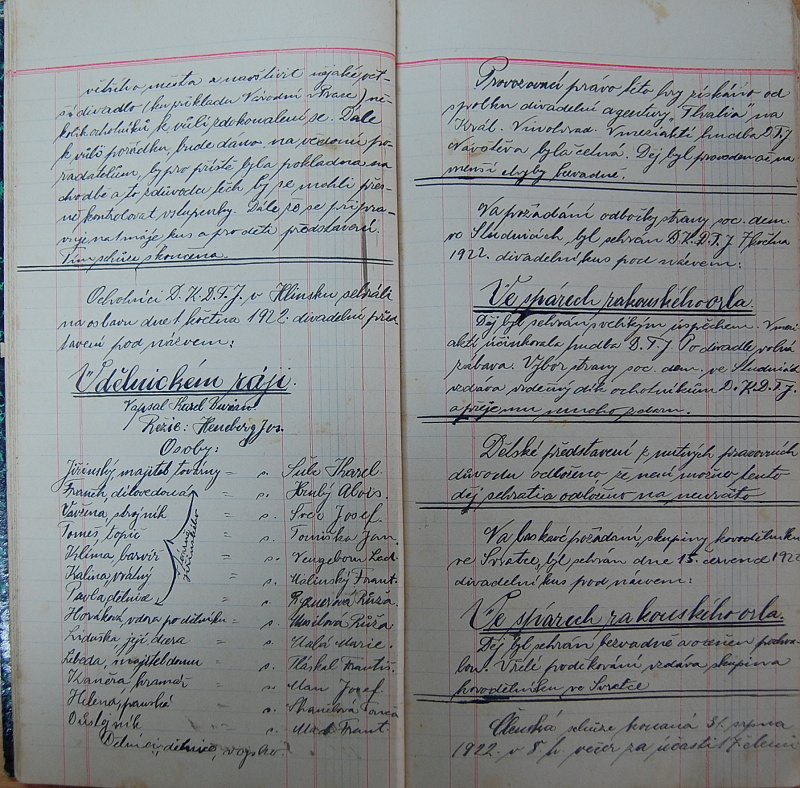 většího města a navštívit nějaké vět-
ší divadlo (ku příkladu Národní v Praze) ně-
kolik ochotníků k vůli zdokonalení se. Dále
k vůli pořádku, bude dáno na vědomí po-
řadatelům, by pro příště byla pokladna na
chodbě a to z důvodu těch by se mohli přes-
ně kontrolovat vstupenky. Dále že se připra-
vuje na 1 máje kus a pro děti představení.
Tím schůze skončena.
Ochotníci D.K.D.T.J. v Hlinsku sehráli
na oslavu dne 1. května 1922. divadelní před-
stavení pod názvem:
V dělnickém ráji.
Napsal Karel
Režie: Heneberg Jos.
Osoby:
Jiřinský, majitel továrny = p. Sulc Karel.
Franěk, dílovedoucí = p. Hrubý Alois.
Vavřena, strojník = p. Švec Josef
Tomeš, topič = p. Tomiška Jan.
Klíma, barvíř = p. Vengebom Lad.
Kalina, vrátný = p. Malinský Frant.
Pavla, dělnice = p. Růža.
v továrně
Jiřinského
Horáková, vdova po dělníku = p. Růža
Liduška její dcera = p. Malá Marie.
Lebeda, majitel domu = p. Fläskal Františ.
Kaněra kramář = p. Man Josef
Helena, panská = p.
Důstojník = p. Frant.
Dělníci, dělnice, vojsko.
Provozovací právo této hry získáno od
spolku divadelní agentury "Thalia" na
Král. Vinohrad. V meziaktí hudba D.T.J
Návštěva byla četná. Děj byl proveden až na
menší chyby bezvadně.
Na požádání odbočky strany soc. dem.
ve Studnicích, byl sehrán D.K.D.T.J 7 května
1922. divadelní kus pod názvem:
Ve spárech rakouského orla.
Děj byl sehrán s velikým úspěchem. V mezi
aktí účinkovala hudba D.T.J Po divadle volná
zábava. Výbor strany soc. dem. ve Studnicích
vzdává srdečný dík ochotníkům D.K.D.T.J.
a přeje mu mnoho zdaru.
Dětské představení z nutných pracovních
důvodu odloženo že není možno tento
děj sehrati a odloženo na neurčito
Na laskavé požádání, skupiny kovodělníku
ve Svratce, byl sehrán dne 15. července 1922
divadelní kus pod názvem:
Ve spárech rakouského orla.
Děj byl sehrán bezvadně a oceněn pochva-
lou. Vřelé poděkování vzdává skupina
kovodělníku ve Svratce
Členská schůze konaná 31. srpna
1922. v 8 h. večer za účasti 17 členů